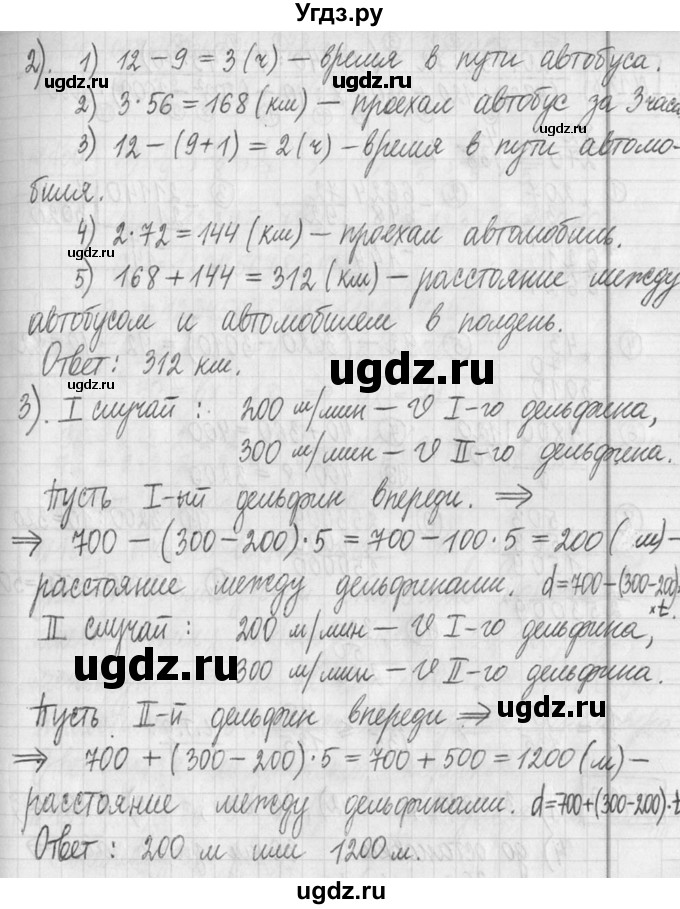 Угдз.ру
2). 1) 12 − 9 = 3 (ч) — время в пути автобуса.
ugdz.ru ugdz.ru
2) 3·56 = 168 (км) — проехал автобус за 3 часа
ugdz.ru
3) 12 − (9+1) = 2 (ч) − время в пути автомо-
биля.
ugdz.ru
4) 2·72 = 144 (км) — проехал автомобиль.
ugdz.ru
5) 168 + 144 = 312 (км) — расстояние между
автобусом и автомобилем в полдень.
Ответ: 312 км.
ugdz.ru
ugdz.ru
3). I случай: 200 м/мин — v I-го дельфина,
300 м/мин — v II-го дельфина.
Пусть I-ый дельфин впереди. ⇒
⇒ 700 − (300 − 200)·5 = 700 − 100·5 = 200 (м) −
расстояние между дельфинами. d = 700 − (300−200)
× t.
ugdz.ru
II случай: 200 м/мин — v I-го дельфина,
300 м/мин — v II-го дельфина.
ugdz.ru
Пусть II-й дельфин впереди ⇒
ugdz.ru
⇒ 700 + (300 − 200)·5 = 700 + 500 = 1200 (м) −
ugdz.ru
расстояние между дельфинами. d = 700 + (300−200)·t
Ответ: 200 м или 1200 м.
ugdz.ru
ugdz.ru